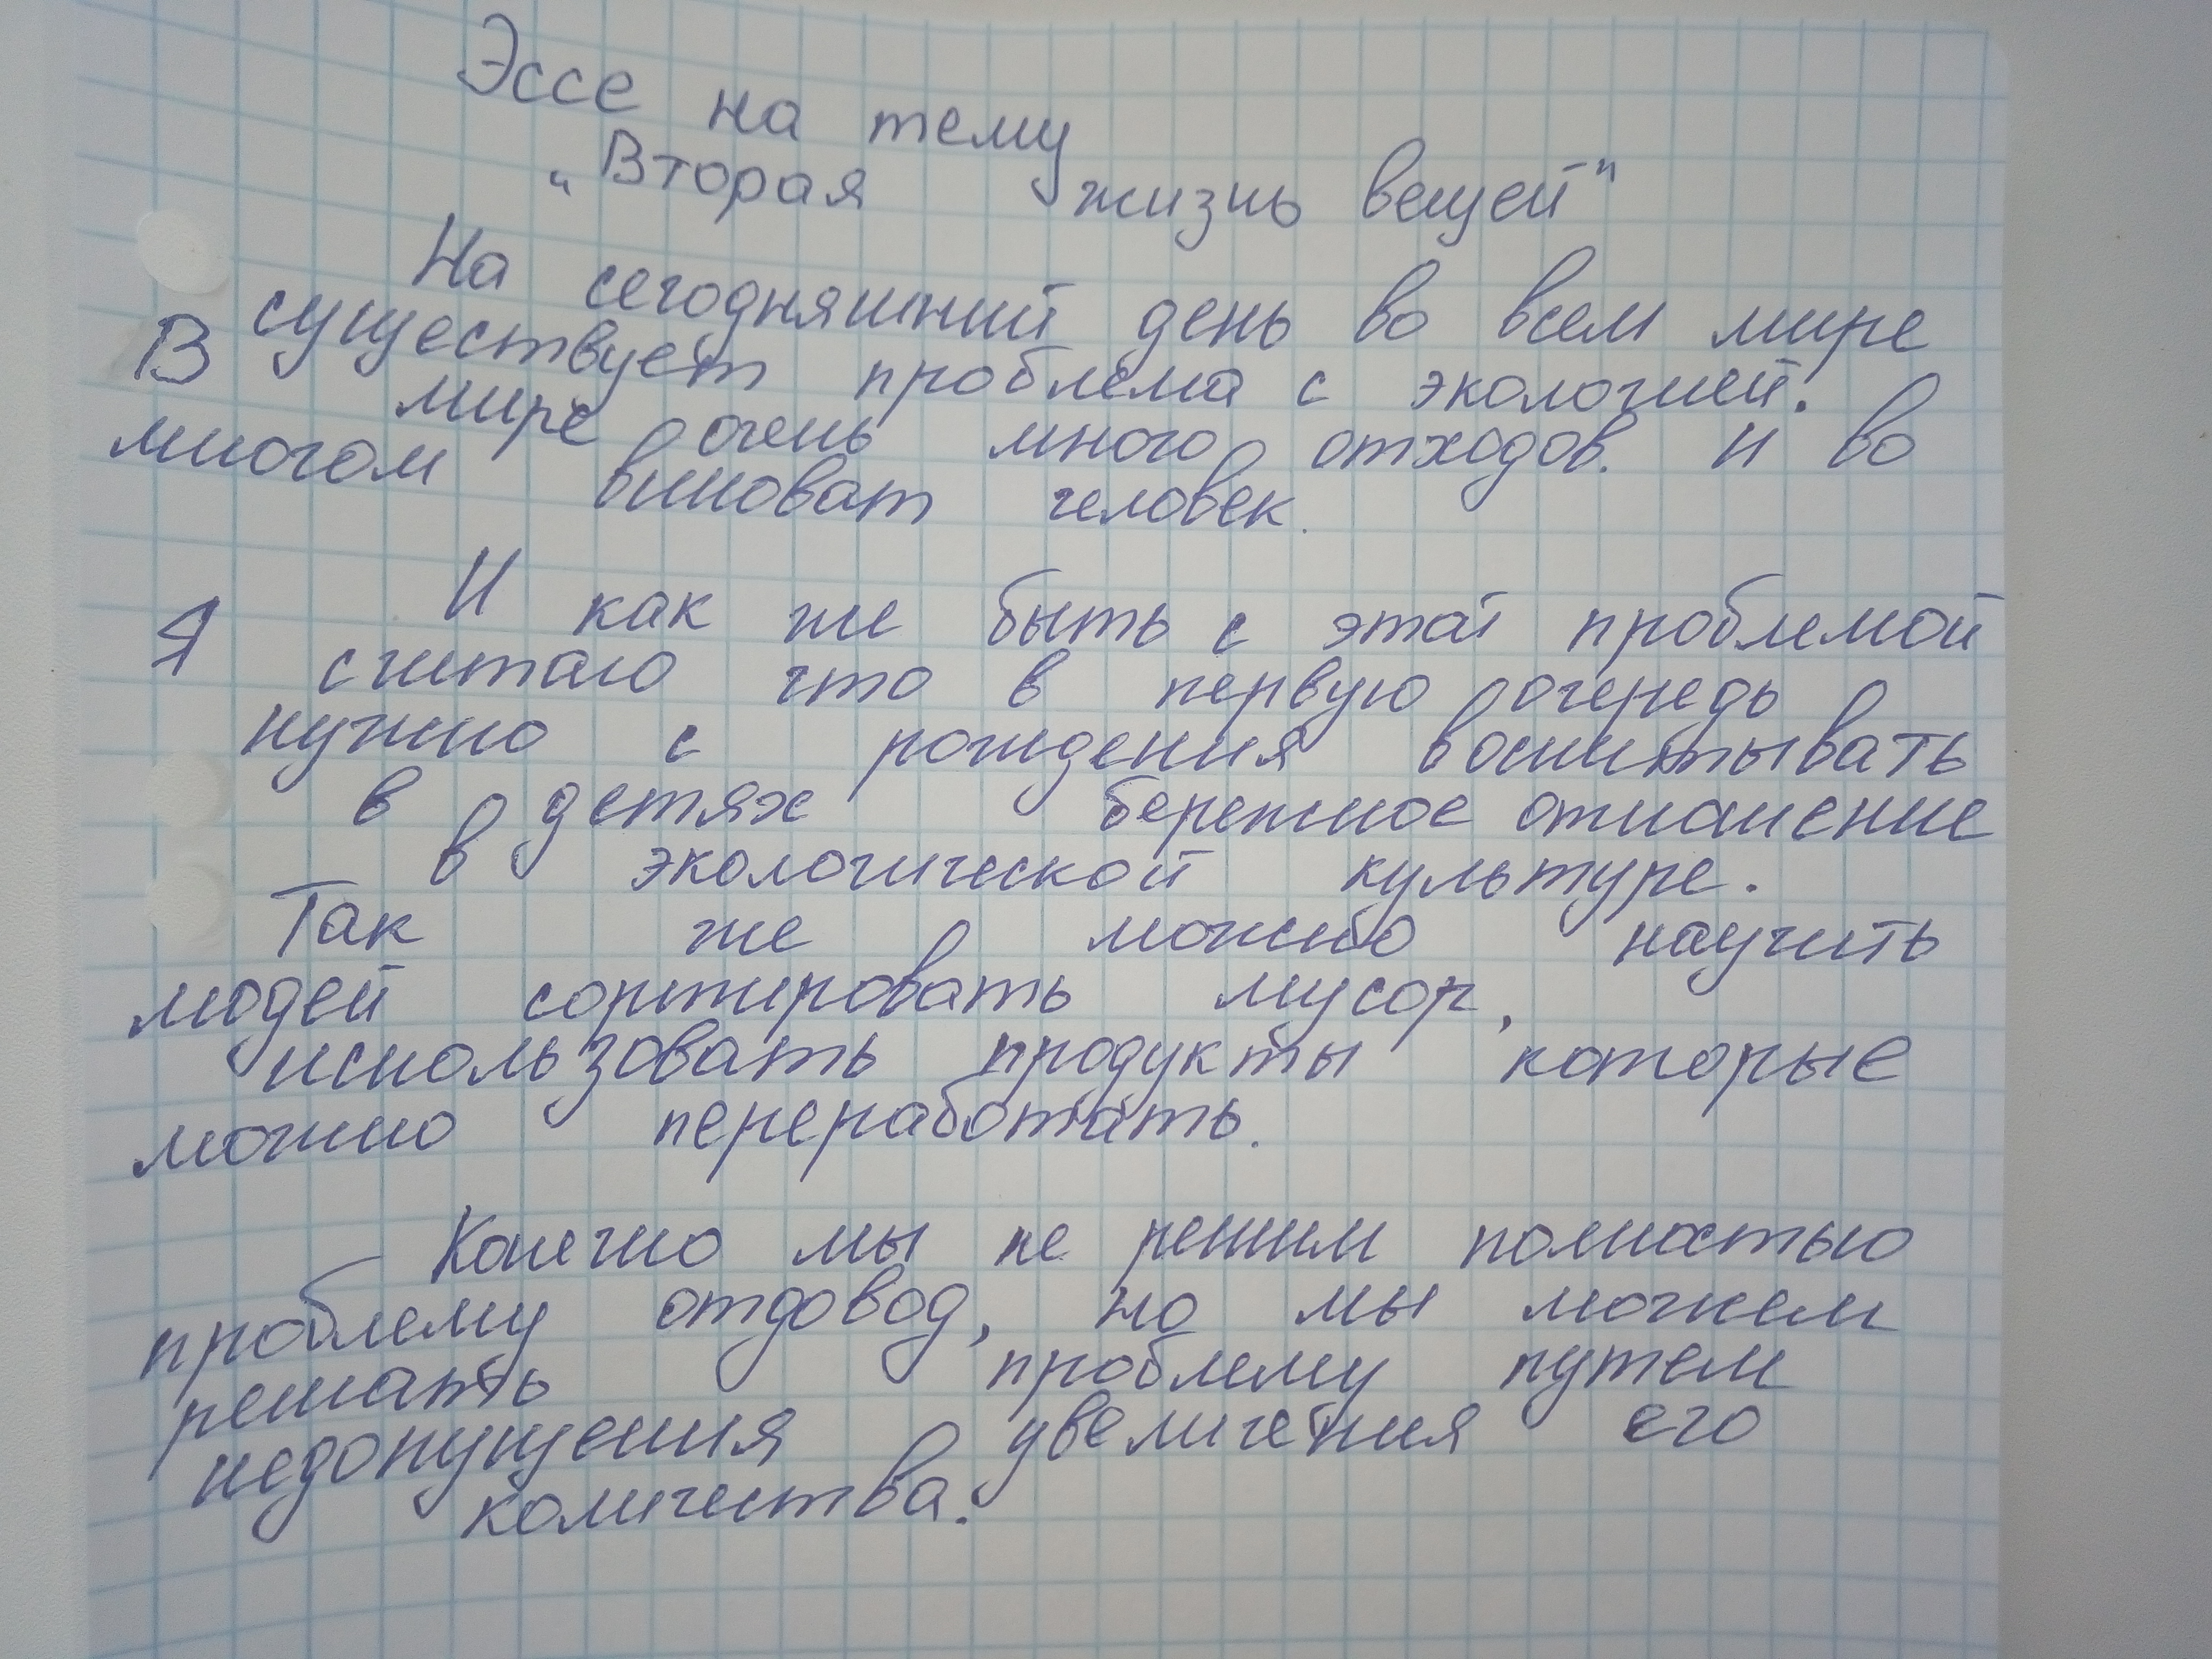 Эссе на тему
„Вторая жизнь вещей"
На сегодняшний день во всем мире
существует проблема с экологией.
В мире очень много отходов. И во
многом виноват человек.
И как же быть с этой проблемой
Я считаю что в первую очередь
нужно с рождения воспитывать
в детях бережное отношение
в экологической культуре.
Так же можно научить
людей сортировать мусор,
использовать продукты которые
можно переработать.
Конечно мы не решим полностью
проблему отдовод, но мы можем
решать проблему путем
недопущения увеличения его
количества.